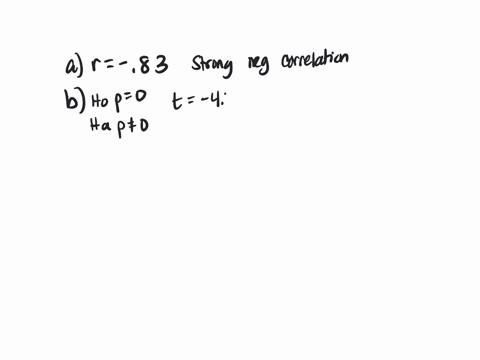 a) r = -.83 Strong neg correlation
b) Ho p=0 t = -4.
Ha p≠0